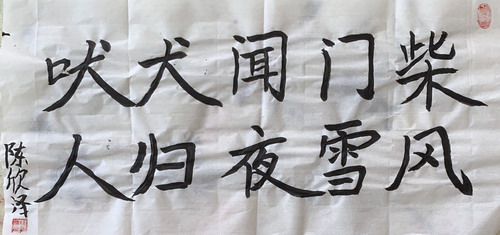 柴门闻犬吠
风雪夜归人
陈欣泽